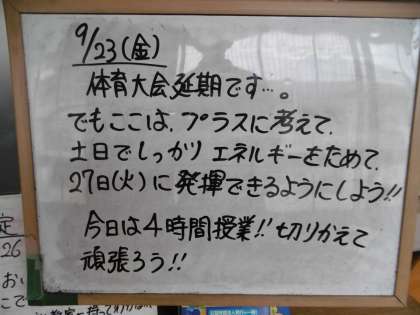 9/23(金)
体育大会延期です…。
でもここは、プラスに考えて、
土日でしっかりエネルギーをためて、
27日(火)に発揮できるようにしよう!!
今日は4時間授業!!切りかえて
頑張ろう!!
定
26
おい
こで